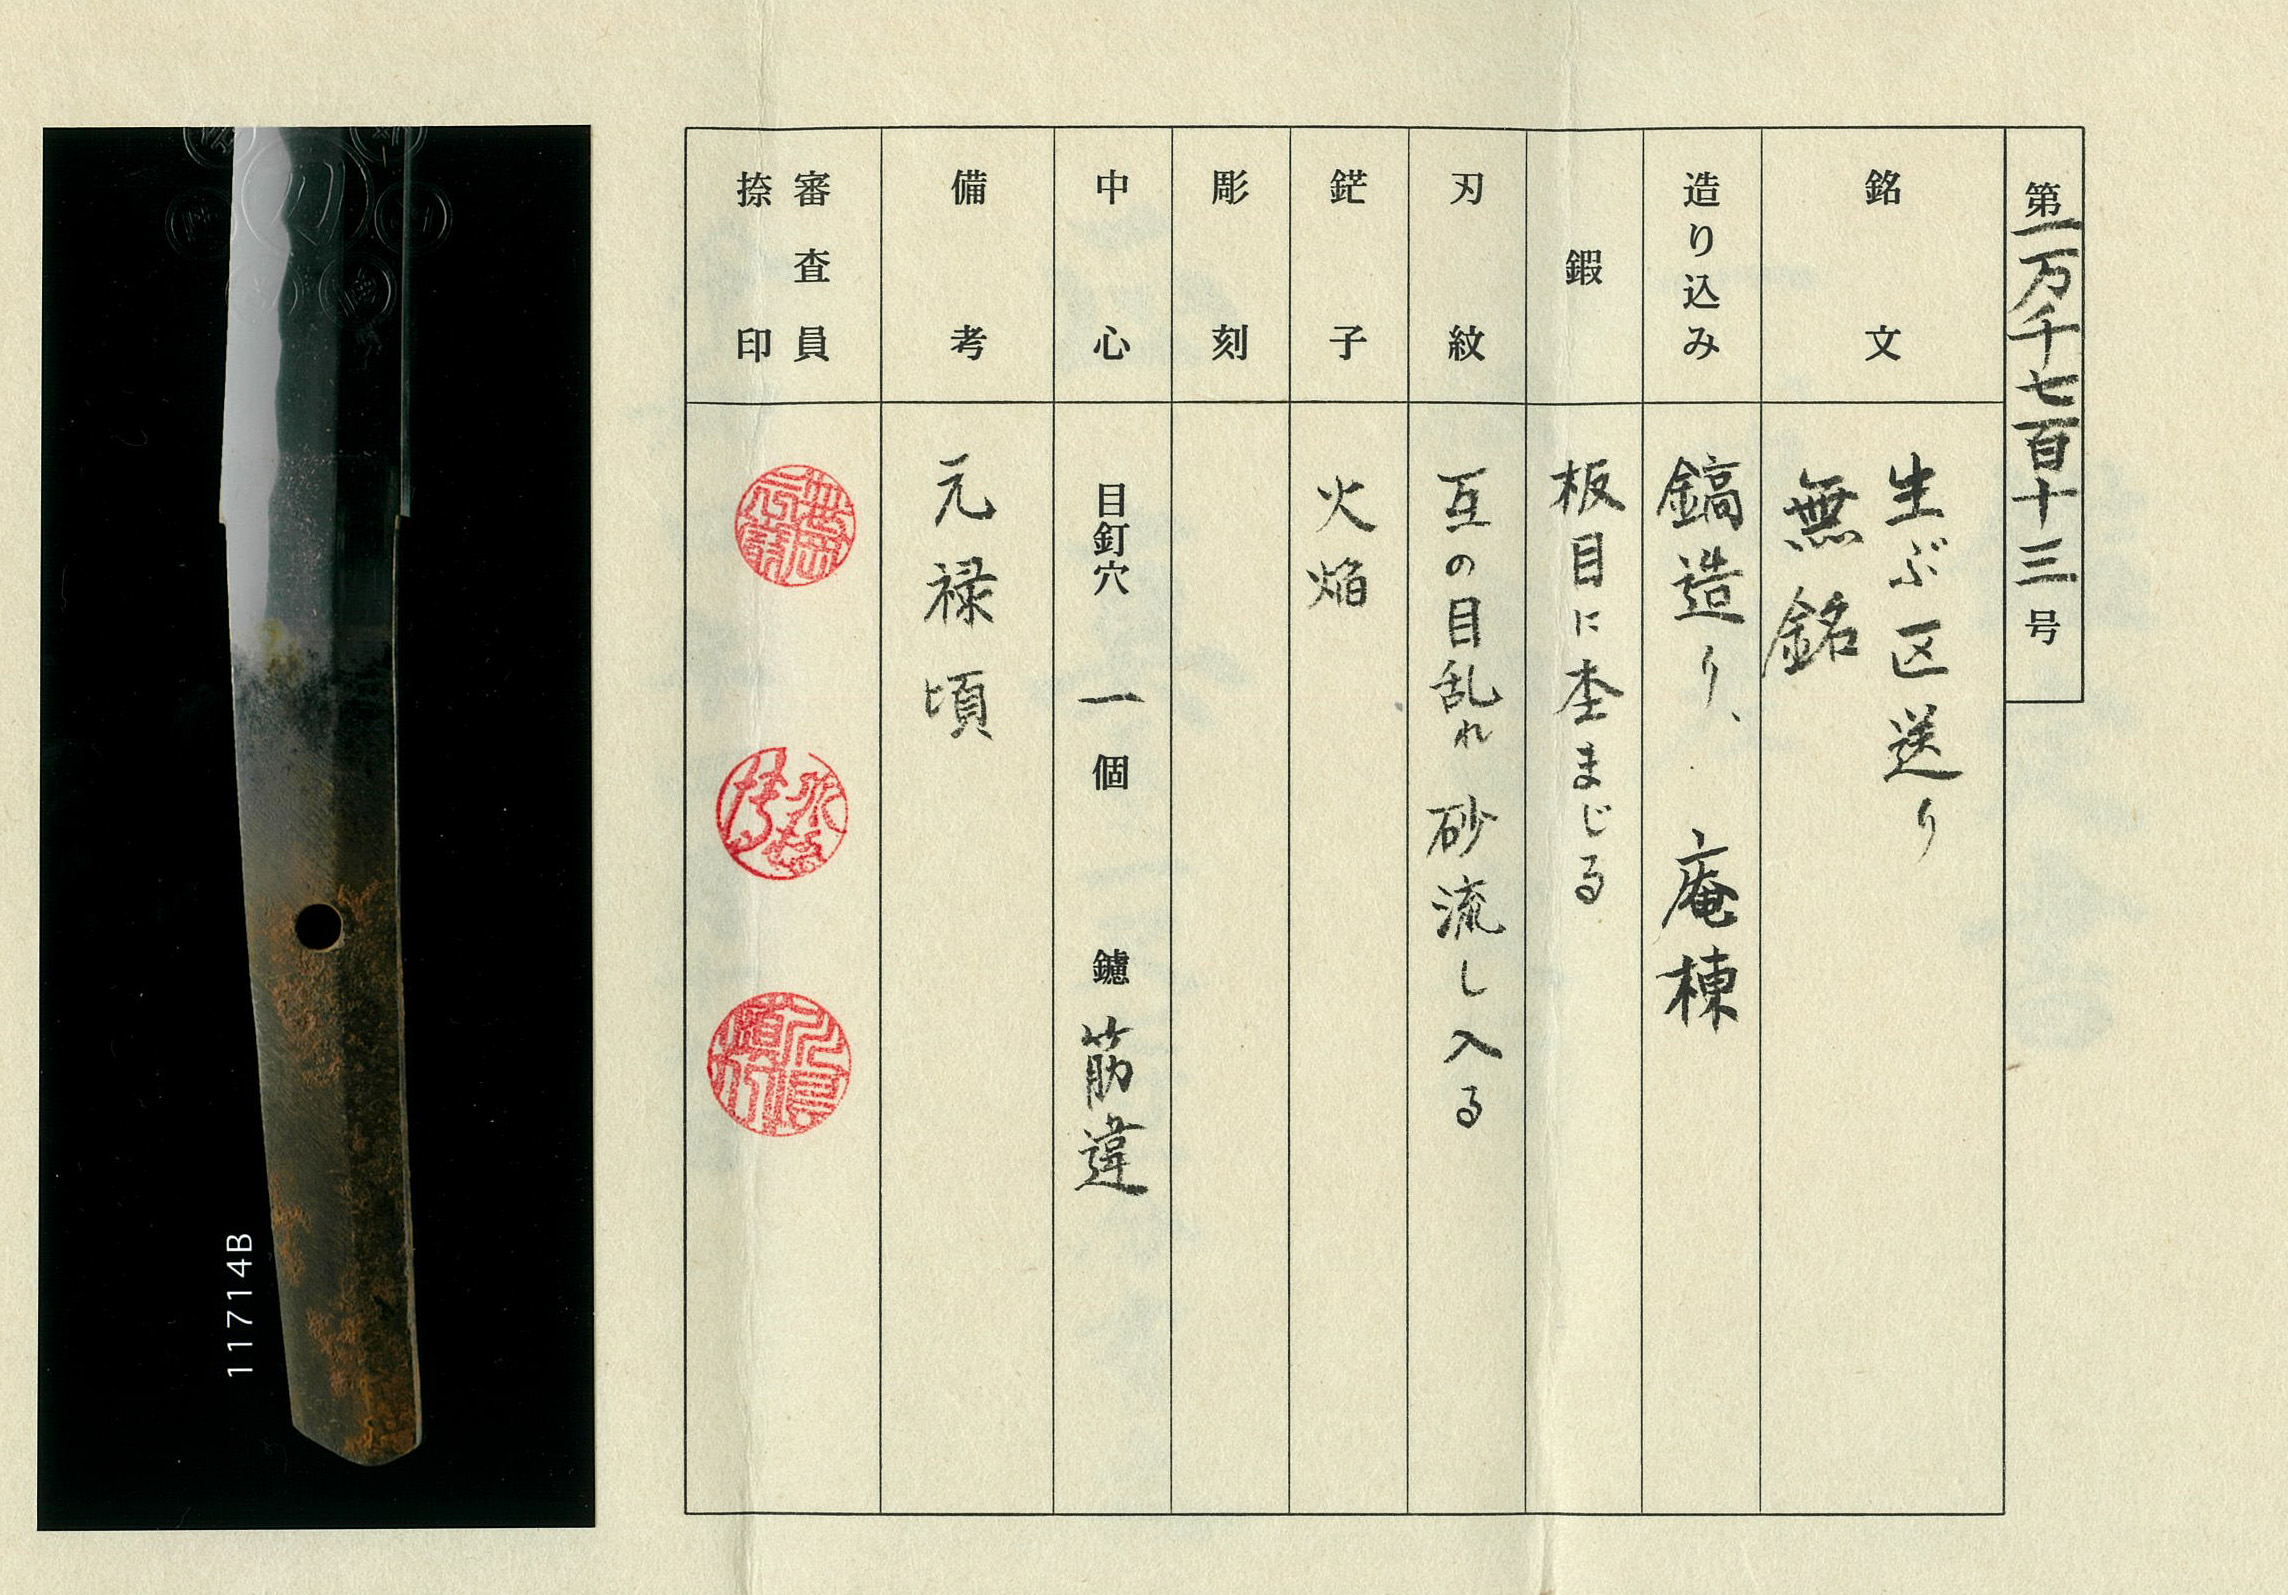 第一万千七百十三号
銘文
生ぶ区送り
無銘
造り込み
鎬造り、庵棟
鍜
板目に杢まじる
刃紋
互の目乱れ砂流し入る
鋩子
火焔
彫刻
中心
目釘穴 一個 鑢 筋違
備考
元禄頃
審査員
捺印
11714B